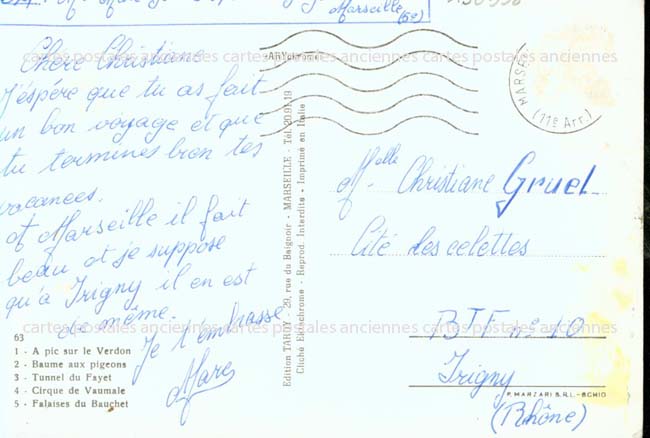 Marseille
(5e)
Chère Christiane
J'espère que tu as fait
un bon voyage et que
tu termines bien tes
vacances.
A Marseille il fait
beau et je suppose
qu'à Irigny il en est
de même.
Je t'embrasse
63
1 - A pic sur le Verdon
2 - Baume aux pigeons
3 - Tunnel du Fayet
4 - Cirque de Vaumale
5 - Falaises du Bauchet
Edition TARDY - 29, rue du Baignoir - MARSEILLE - Tél. 20.91.19
Cliché Ektachrome - Reprod. Interdite - Imprimé en Italie
MARSEI
(11e Arr.)
Melle Christiane Gruel
Cité des celettes
BTF n° 10
Irigny
P. MARZARI S.R.L. - SCHIO
(Rhône)
cartes postales anciennes cartes postales anciennes cartes postales anciennes
cartes postales anciennes cartes postales anciennes cartes postales anciennes